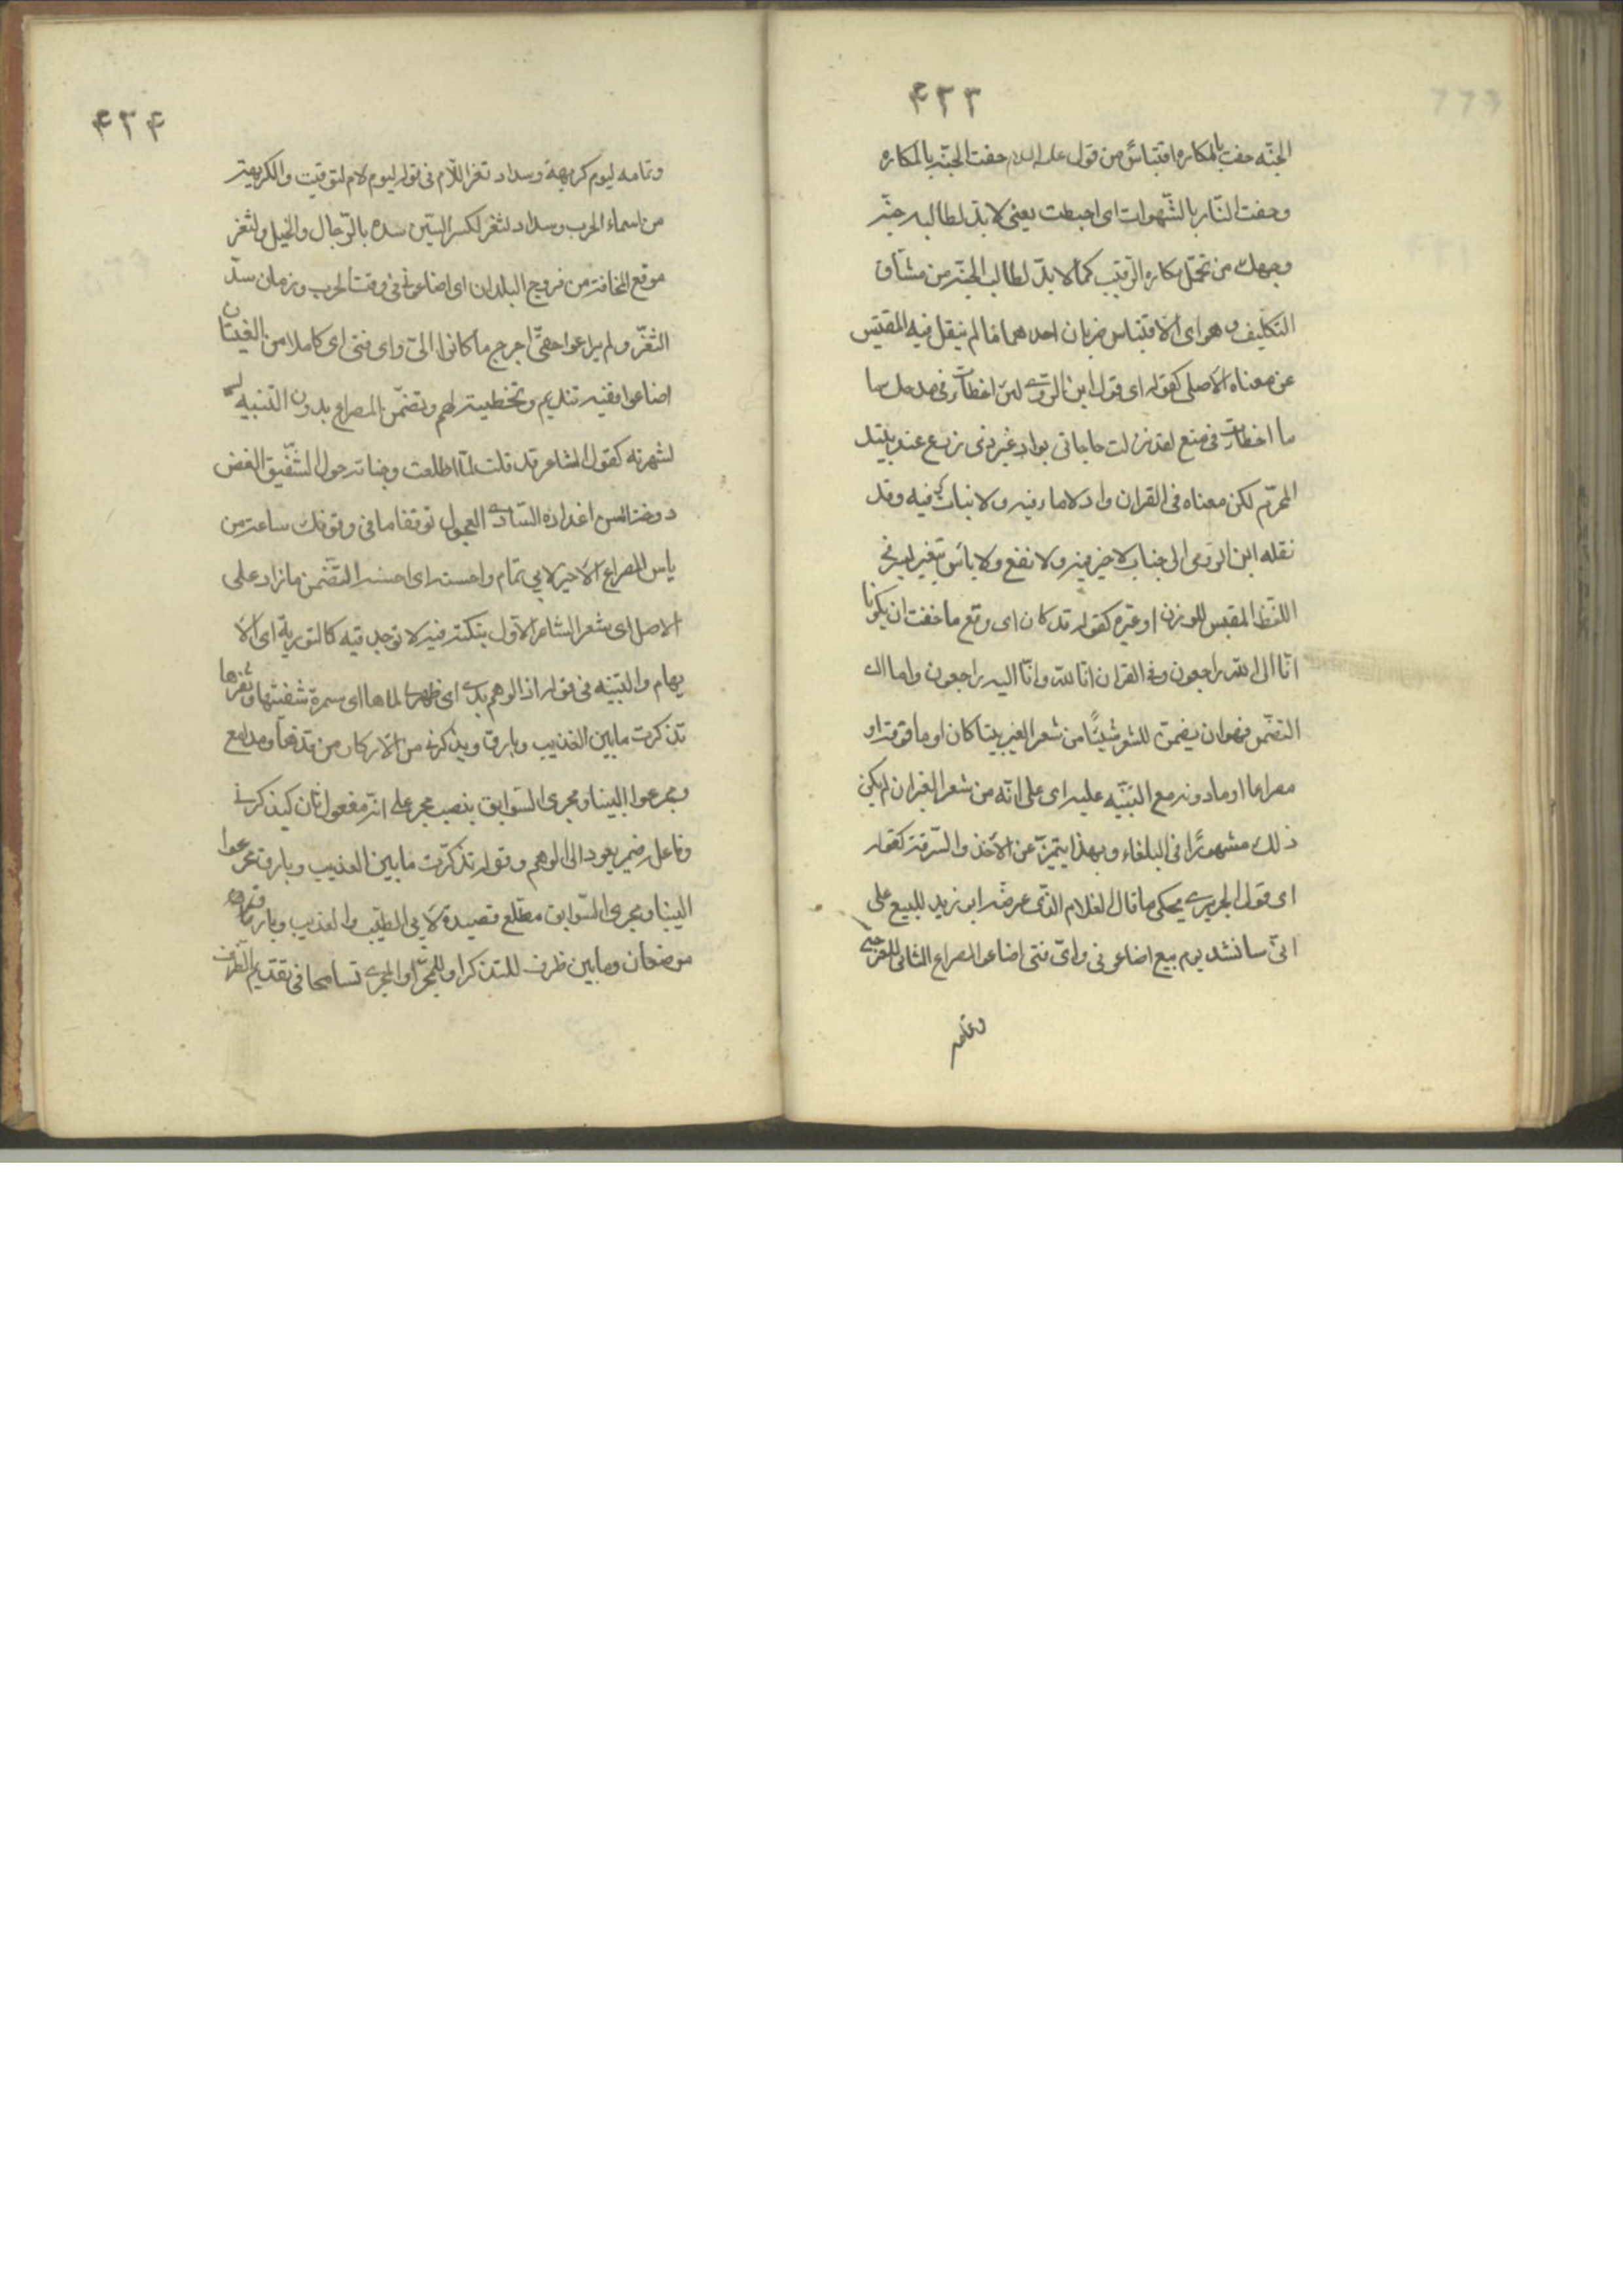 ۴۳۳
الجنّه حفت بالمكاره اقتباسٌ من قول عليه السلام حفت الجنّه بالمكاره
وحفت النّار بالشّهوات اى احيطت يعنى لا بدّ لطالب جنّه
وجهك من تحمّل مكاره الرّقيب كما لا بدّ لطالب الجنّه من مشاق
التكليف وهو اى الاقتباس ضربان احدهما ما لم ينقل فيه المقتبس
عن معناه الاصلى كقوله اى قول ابن الرّومى لئن اخطات فى مدحك
ما اخطات فى منع لقد نزلت حاجاتى بواد غير ذى زرع عند بيتك
المحرّم لكن معناه فى القران واد لا ماء فيه ولا نبات فيه وقد
نقله ابن الرّومى الى جناب لا خير فيه ولا نفع ولا بأس بتغيير يسير فى
اللفظ المقتبس للوزن او غيره كقوله قد كان اى وقع ما خفت ان يكونا
انّا الى الله راجعون وفى القران انا لله وانّا اليه راجعون واما
التضمّن فهو ان يضمن للشعر شيئًا من شعر الغير بيتا كان او ما فوقه او
مصراعا او ما دونه مع التنبّيه عليه اى على انّه من شعر الغير ان لم يكن
ذلك مشهورًا فى البلغاء وبهذا يتميّز عن الاخذ والسّرقه كقوله
اى قول الحريرى يحكى ما قال الغلام الذّى عرضه ابو زيد للبيع على
انّى سانشد يوم بيع اضاعونى واىّ فتى اضاعوا المصراع الثانى للعرجى
وتمامه
۴۳۴
وتمامه ليوم كريهة وسداد ثغر اللّام فى قوله ليوم لام لتوقيت والكريهة
من اسماء الحرب وسداد لثغر لكسر السّين سده بالرّجال والخيل ولثغر
موقع المخافة من فروج البلدان اى اضاعونى فى وقت الحرب وزمان سدّ
الثغّر ولم يراعوا حقىّ احوج ما كانوا الىّ واى فتى اى كاملا من الفتيان
اضاعوا وفيه تنديم وتخطيئة لهم وتضمّن المصراع بدون التنبيه
لشهرته كقول الشاعر قد قلت لمّا اطلعت وجناته حول الشّقيق الغض
روضة اس اعذاره السّارى العجول توقفا ما فى وقوفك ساعة من
باس المصراع الاخير لابى تمام واحسنه اى احسن التضمّن ما زاد على
الاصل اى شعر الشاعر الاول بنكتة لا توجد فيه كالتورية اى الا
يهام والتشبيه فى قوله اذا الوهم بدى اى ظهر لماها اى سمرة شفتيها وثغرها
تذكرت ما بين العذيب وبارق ويذكرنى من الاركان من قدها ومدامعى
مجر عوالينا ومجرى السّوابق بنصب مجر على انّه مفعول ثان ليذكرنى
وفاعله ضمير يعود الى الوهم وقوله تذكرت ما بين العذيب وبارق مجر عوا
لينا ومجرى السّوابق مطّلع قصيدة لابى الطيّب والعذيب وبارق
موضعان وما بين ظرف للتذكر او للمجرّ او المجرى تسامحا فى تقديم الظرف